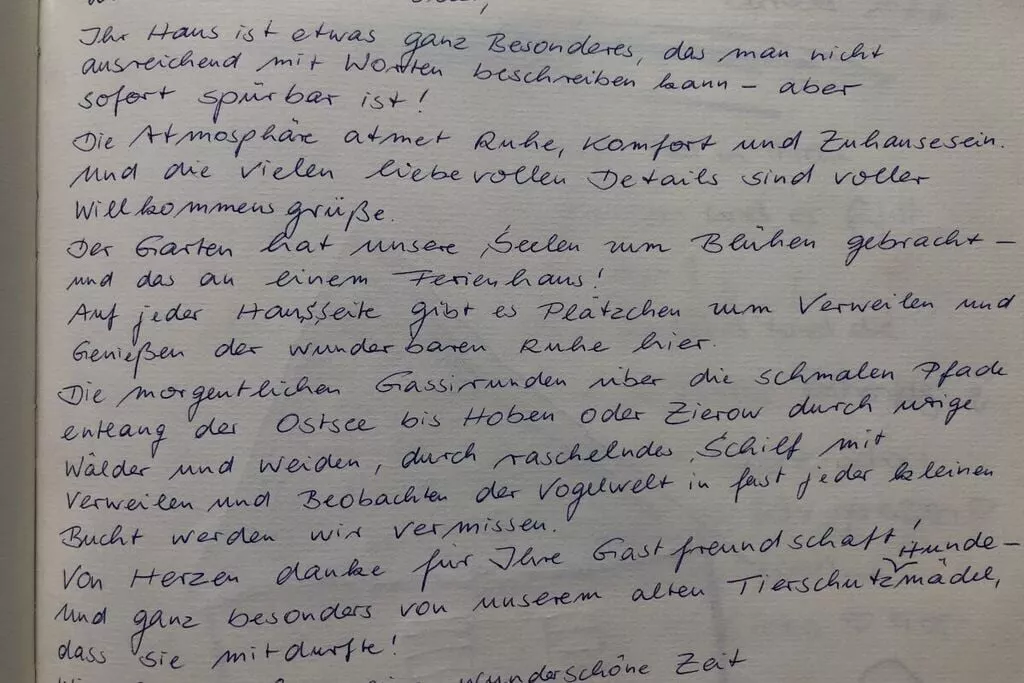 Ihr Haus ist etwas ganz Besonderes, das man nicht
ausreichend mit Worten beschreiben kann – aber
sofort spürbar ist!
Die Atmosphäre atmet Ruhe, Komfort und Zuhausesein.
Und die vielen liebevollen Details sind voller
Willkommensgrüße.
Der Garten hat unsere Seelen zum Blühen gebracht –
und das an einem Ferienhaus!
Auf jeder Hausseite gibt es Plätzchen zum Verweilen und
Genießen der wunderbaren Ruhe hier.
Die morgentlichen Gassirunden über die schmalen Pfade
entlang der Ostsee bis Hoben oder Zierow durch urige
Wälder und Weiden, durch raschelndes Schilf mit
Verweilen und Beobachten der Vogelwelt in fast jeder kleinen
Bucht werden wir vermissen.
Von Herzen danke für Ihre Gastfreundschaft!
und ganz besonders von unserem alten Tierschutz Hunde-mädel,
dass sie mitdurfte!
wunderschöne Zeit